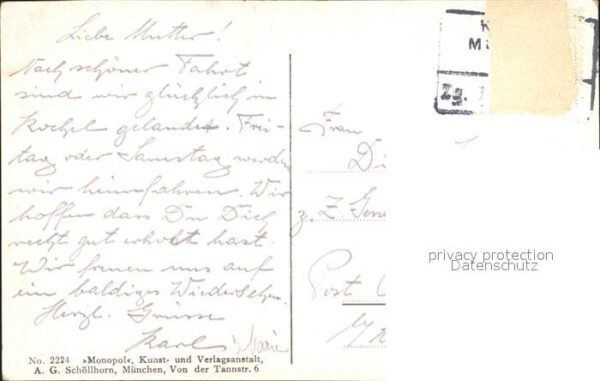 Liebe Mutter!
Nach schöner Fahrt
sind wir glücklich in
Kochel gelandet. Frei-
tag oder Samstag werden
wir heimfahren. Wir
hoffen dass Du Dich
recht gut erholt hast.
Wir freuen uns auf
ein baldiges Wiedersehen.
Herzl. Grüsse
Karl Marie
No. 2224 »Monopol«, Kunst- und Verlagsanstalt,
A. G. Schöllhorn, München, Von der Tannstr. 6
Zg.
Frau
Di
z. Z.
Post
privacy protection
Datenschutz